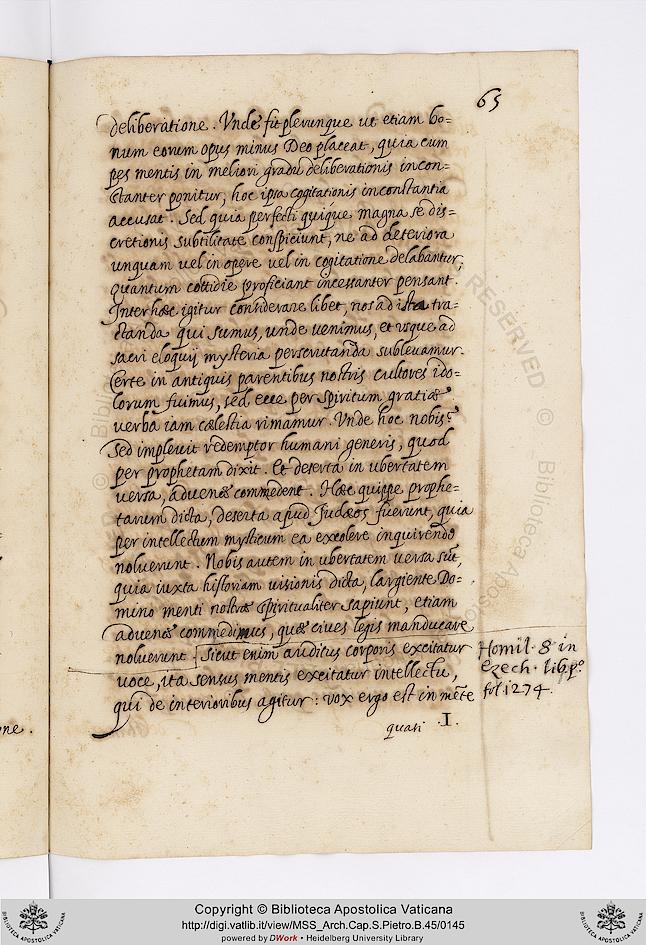 65
deliberatione. Vnde fit plerunque ut etiam bo=
num eorum opus minus Deo placeat, quia cum
pes mentis in meliori gradu deliberationis incon=
stanter ponitur, hoc ipsa cogitationis inconstantia
accusat. Sed quia perfecti quique magna se dis=
cretionis subtilitate conspiciunt, ne ad deteriora
unquam vel in opere vel in cogitatione delabantur,
quantum cottidie proficiant incessanter pensant.
Inter hæc igitur considerare libet, nos ad ista tra=
ctanda qui sumus, unde venimus, et usque ad
sacri eloquij mysteria perscrutanda sublevamur.
Certe in antiquis parentibus nostris cultores ido=
lorum fuimus, sed ecce per spiritum gratiæ
verba iam cælestia rimamur. Vnde hoc nobis?
Sed implevit redemptor humani generis, quod
per prophetam dixit. Et deserta in ubertatem
versa, advenæ commedent. Hæc quippe prophe=
tarum dicta, deserta apud Judæos fuerunt, quia
per intellectum mysticum ea excolere inquirendo
noluerunt. Nobis autem in ubertatem versa sūt,
quia iuxta historiam visionis dicta, largiente Do=
mino menti nostræ spiritualiter sapiunt, etiam
advenæ commedimus, quæ cives legis manducare
noluerunt. Sicut enim auditus corporis excitatur
voce, ita sensus mentis excitatur intellectu,
qui de interioribus agitur: vox ergo est in mēte
quasi .I.
Homil. 8 in
Ezech. lib. pº
fol 1274.
ne.
RESERVED © Biblioteca Apostolica
© Biblioteca
Copyright © Biblioteca Apostolica Vaticana
http://digi.vatlib.it/view/MSS_Arch.Cap.S.Pietro.B.45/0145
powered by DWork • Heidelberg University Library
BIBLIOTECA APOSTOLICA VATICANA
BIBLIOTECA APOSTOLICA VATICANA